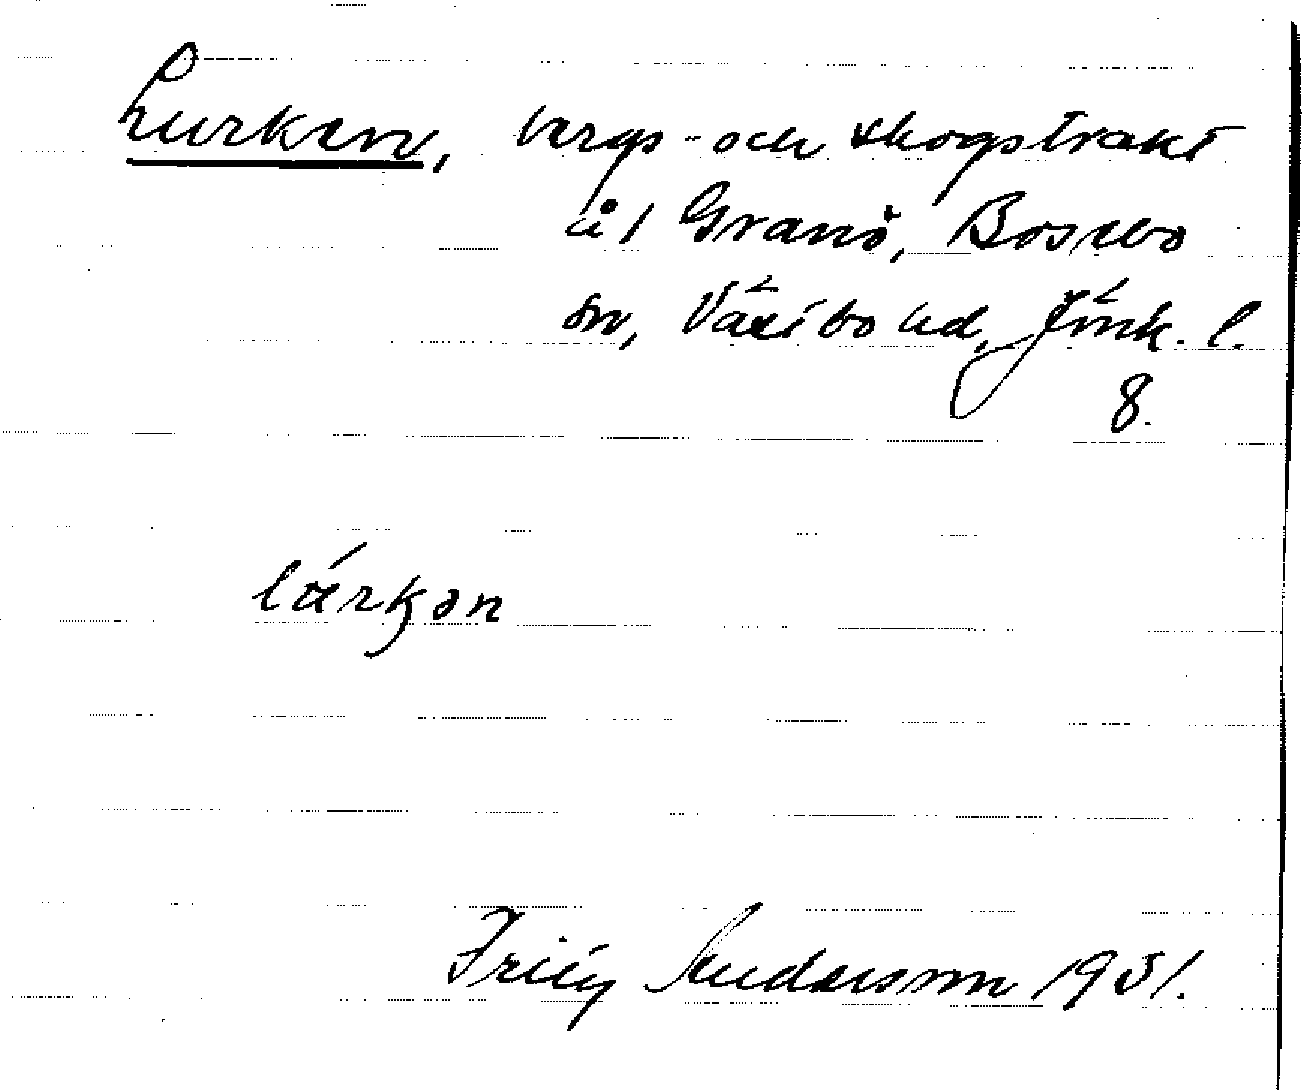 Lurken, bergs- och skogstrakt
å/ Granö, Bosebo
sn, Västbo hd, Jönk. l.
8.
lærkən
Fritz Andersson 1931.